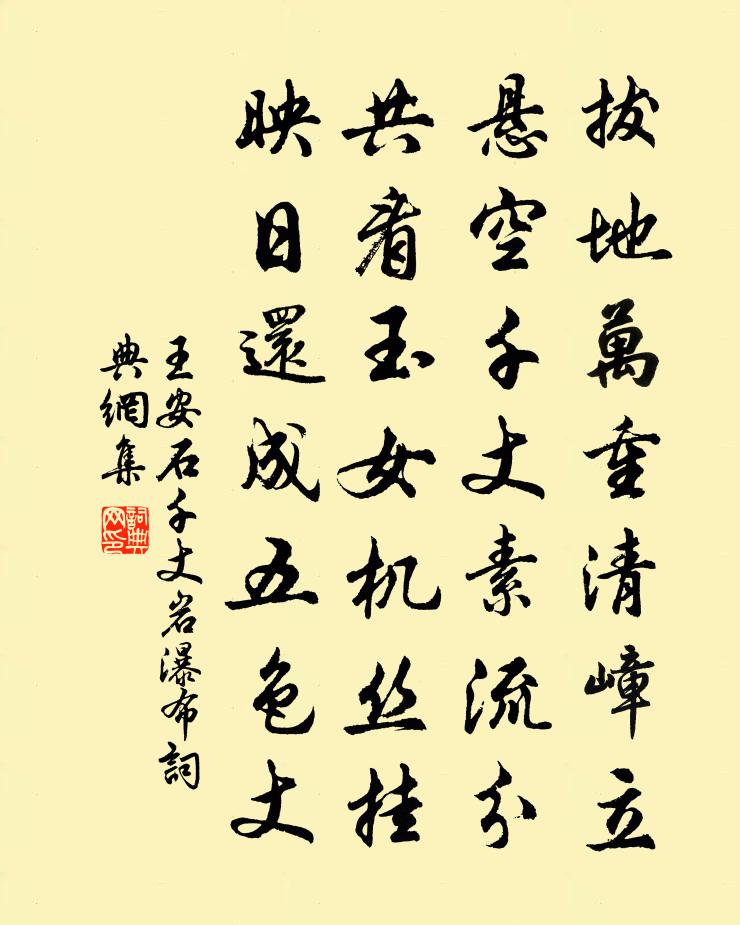 拔地萬重清嶂立
悬空千丈素流分
共看玉女机丝挂
映日還成五色丈
王安石千丈岩瀑布詞
典網集
詞典
网印